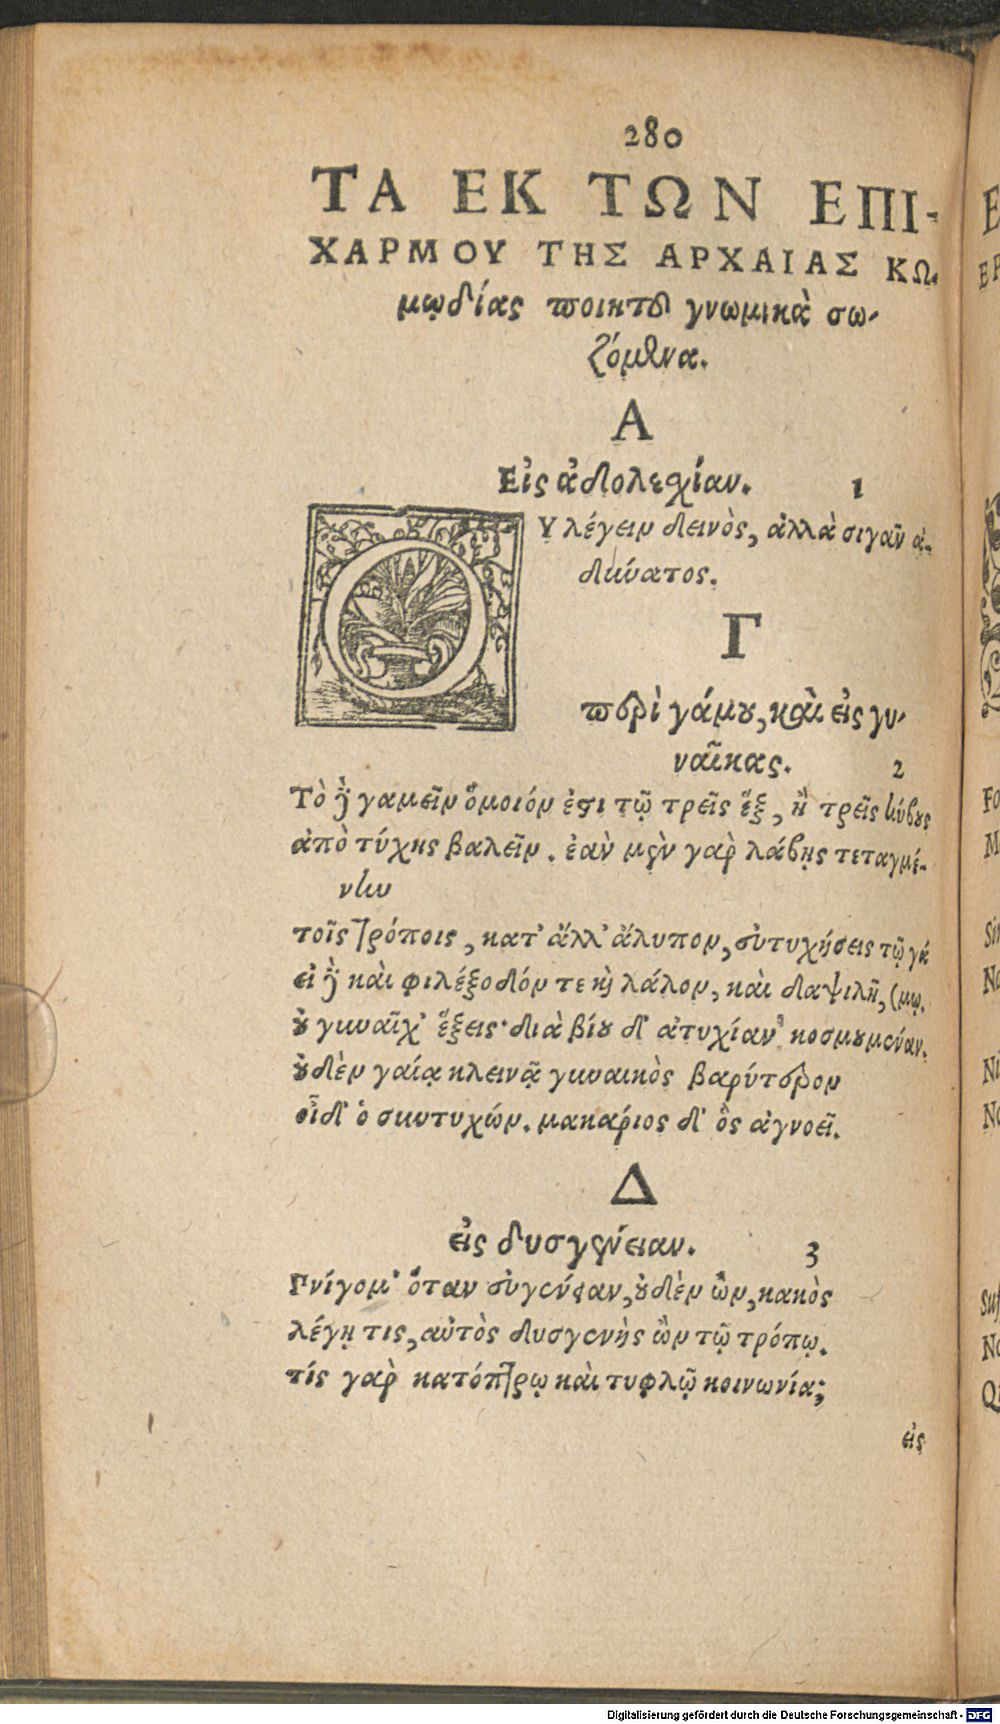 280
ΤΑ ΕΚ ΤΩΝ ΕΠΙ-
ΧΑΡΜΟΥ ΤΗΣ ΑΡΧΑΙΑΣ ΚΩ-
μῳδίας ποιητοῦ γνωμικὰ σω-
ζόμενα.
Α
Εἰς ἀδολεσχίαν. 1
ΟΥ λέγειν δεινὸς, ἀλλὰ σιγᾶν ἀ-
δύνατος.
Γ
περὶ γάμου, καὶ εἰς γυ-
ναῖκας. 2
Τὸ δὲ γαμεῖν ὅμοιόν ἐστι τῷ τρεῖς ἓξ, ἢ τρεῖς κύβους
ἀπὸ τύχης βαλεῖν. ἐὰν μὲν γὰρ λάβῃς τεταγμέ-
νην
τοῖς τρόποις, κατ' ἄλλ' ἄλυπον, εὐτυχήσεις τῷ γά
εἰ δὲ καὶ φιλέξοδόν τε καὶ λάλον, καὶ δαψιλῆ, (μῳ.
οὐ γυναῖχ' ἕξεις· διὰ βίου δ' ἀτυχίαν κοσμουμέναν.
οὐδὲν γαίᾳ κλεινᾷ γυναικὸς βαρύτερον
οἶδ' ὁ συντυχών. μακάριος δ' ὃς ἀγνοεῖ.
Δ
εἰς δυσγένειαν. 3
Πνίγομ' ὅταν εὐγένειαν, οὐδὲν ὢν, κακὸς
λέγῃ τις, αὐτὸς δυσγενὴς ὢν τῷ τρόπῳ.
τίς γὰρ κατόπτρῳ καὶ τυφλῷ κοινωνία;
εἰς
Digitalisierung gefördert durch die Deutsche Forschungsgemeinschaft - DFG